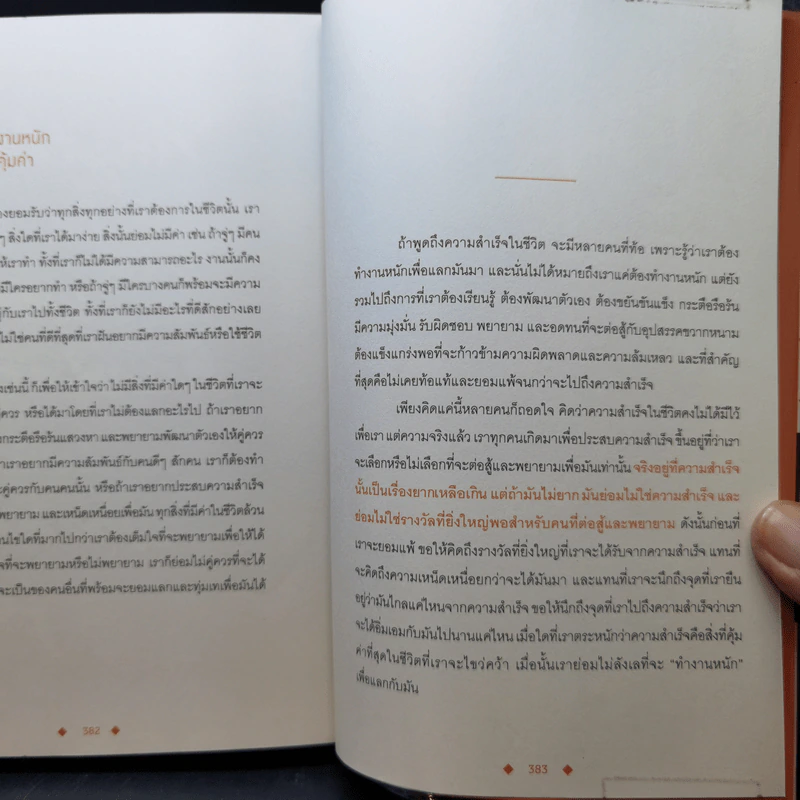 งานหนัก
คุ้มค่า
องยอมรับว่าทุกสิ่งทุกอย่างที่เราต้องการในชีวิตนั้น เรา
ๆ สิ่งใดที่เราได้มาง่าย สิ่งนั้นย่อมไม่มีค่า เช่น ถ้าจู่ๆ มีคน
ให้เราทำ ทั้งที่เราก็ไม่ได้มีความสามารถอะไร งานนั้นก็คง
มีใครอยากทำ หรือถ้าจู่ๆ มีใครบางคนก็พร้อมจะมีความ
กับเราไปทั้งชีวิต ทั้งที่เราก็ยังไม่มีอะไรที่ดีสักอย่างเลย
ไม่ใช่คนที่ดีที่สุดที่เราฝันอยากมีความสัมพันธ์หรือใช้ชีวิต
เช่นนี้ ก็เพื่อให้เข้าใจว่า ไม่มีสิ่งที่มีค่าใดๆ ในชีวิตที่เราจะ
คู่ควร หรือได้มาโดยที่เราไม่ต้องแลกอะไรไป ถ้าเราอยาก
กระตือรือร้นแสวงหา และพยายามพัฒนาตัวเองให้คู่ควร
าเราอยากมีความสัมพันธ์กับคนดีๆ สักคน เราก็ต้องทำ
คู่ควรกับคนคนนั้น หรือถ้าเราอยากประสบความสำเร็จ
พยายาม และเหน็ดเหนื่อยเพื่อมัน ทุกสิ่งที่มีค่าในชีวิตล้วน
นไขใดที่มากไปกว่าเราต้องเต็มใจที่จะพยายามเพื่อให้ได้
จที่จะพยายามหรือไม่พยายาม เราก็ย่อมไม่คู่ควรที่จะได้
จะเป็นของคนอื่นที่พร้อมจะยอมแลกและทุ่มเทเพื่อมันได้
382
ถ้าพูดถึงความสำเร็จในชีวิต จะมีหลายคนที่ท้อ เพราะรู้ว่าเราต้อง
ทำงานหนักเพื่อแลกมันมา และนั่นไม่ได้หมายถึงเราแค่ต้องทำงานหนัก แต่ยัง
รวมไปถึงการที่เราต้องเรียนรู้ ต้องพัฒนาตัวเอง ต้องขยันขันแข็ง กระตือรือร้น
มีความมุ่งมั่น รับผิดชอบ พยายาม และอดทนที่จะต่อสู้กับอุปสรรคขวากหนาม
ต้องแข็งแกร่งพอที่จะก้าวข้ามความผิดพลาดและความล้มเหลว และที่สำคัญ
ที่สุดคือไม่เคยท้อแท้และยอมแพ้จนกว่าจะไปถึงความสำเร็จ
เพียงคิดแค่นี้หลายคนก็ถอดใจ คิดว่าความสำเร็จในชีวิตคงไม่ได้มีไว้
เพื่อเรา แต่ความจริงแล้ว เราทุกคนเกิดมาเพื่อประสบความสำเร็จ ขึ้นอยู่ที่ว่าเรา
จะเลือกหรือไม่เลือกที่จะต่อสู้และพยายามเพื่อมันเท่านั้น จริงอยู่ที่ความสำเร็จ
นั้นเป็นเรื่องยากเหลือเกิน แต่ถ้ามันไม่ยาก มันย่อมไม่ใช่ความสำเร็จ และ
ย่อมไม่ใช่รางวัลที่ยิ่งใหญ่พอสำหรับคนที่ต่อสู้และพยายาม ดังนั้นก่อนที่
เราจะยอมแพ้ ขอให้คิดถึงรางวัลที่ยิ่งใหญ่ที่เราจะได้รับจากความสำเร็จ แทนที่
จะคิดถึงความเหน็ดเหนื่อยกว่าจะได้มันมา และแทนที่เราจะนึกถึงจุดที่เรายืน
อยู่ว่ามันไกลแค่ไหนจากความสำเร็จ ขอให้นึกถึงจุดที่เราไปถึงความสำเร็จว่าเรา
จะได้อิ่มเอมกับมันไปนานแค่ไหน เมื่อใดที่เราตระหนักว่าความสำเร็จคือสิ่งที่คุ้ม
ค่าที่สุดในชีวิตที่เราจะไขว่คว้า เมื่อนั้นเราย่อมไม่ลังเลที่จะ “ทำงานหนัก”
เพื่อแลกกับมัน
383